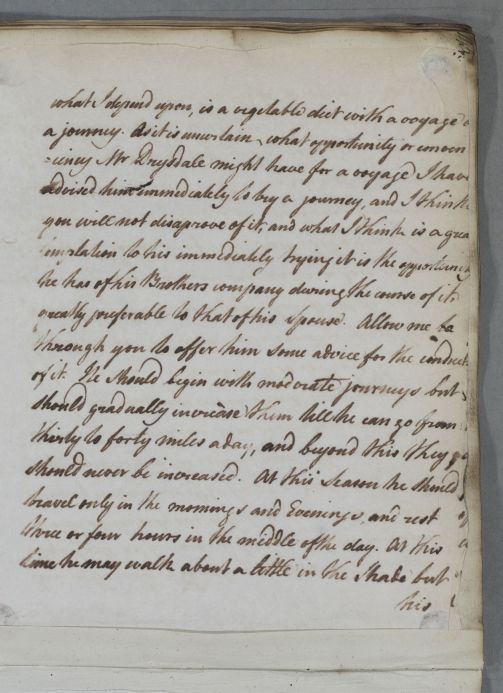 what I depend upon, is a vegetable diet with a voyage or
a journey. As it is uncertain, what opportunity or conven
-iency Mr Drysdale might have for a voyage I have
advised him immediately to try a journey, and I think
you will not disaprove of it, and what I think is a grea
temptation to his immediately trying it is the opportunity
he has of his Brothers company during the course of it,
greatly preferable to that of his Spouse. Allow me
through you to offer him some advice for the conduct
of it. He should begin with moderate journeys but
should gradually increase them till he can go from
thirty to forty miles a day, and beyond this they
should never be increased. At this Season he should
travel only in the mornings and Evenings, and rest
three or four hours in the middle of the day. At this
time he may walk about a little in the Shade but
his